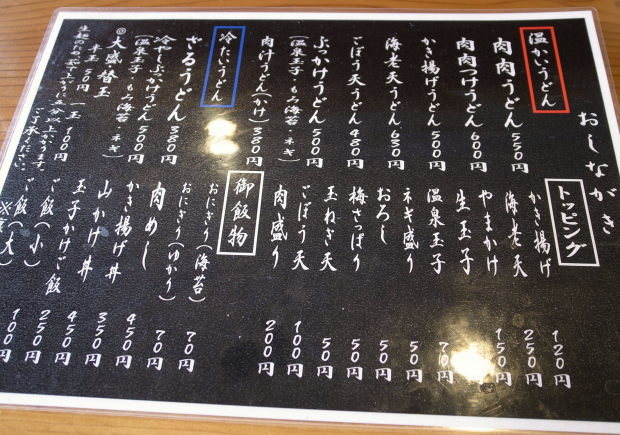 おしながき
温かいうどん
肉肉うどん 550円
肉肉つけうどん 600円
かき揚げうどん 500円
海老天うどん 630円
ごぼう天うどん 480円
ぶっかけうどん 500円
(温泉玉子・もみ海苔・ネギ)
肉汁うどん(かけ) 380円
冷たいうどん
ざるうどん 380円
冷やしぶっかけうどん 500円
(温泉玉子・もみ海苔・ネギ)
◎大盛替玉 一玉 100円
半玉 50円
生麺のため、茹で上がりに五分以上かかります。
ご了承ください。
トッピング
かき揚げ 120円
海老天 250円
やまかけ 150円
生玉子
温泉玉子 70円
ネギ盛り 50円
おろし 50円
梅さっぱり 50円
玉ねぎ天 50円
ごぼう天 100円
肉盛り 200円
御飯物
おにぎり(海苔) 70円
おにぎり(ゆかり) 70円
肉めし 450円
かき揚げ丼 350円
山かけ丼 450円
玉子かけご飯 250円
ご飯(小) 100円
ご飯(大)